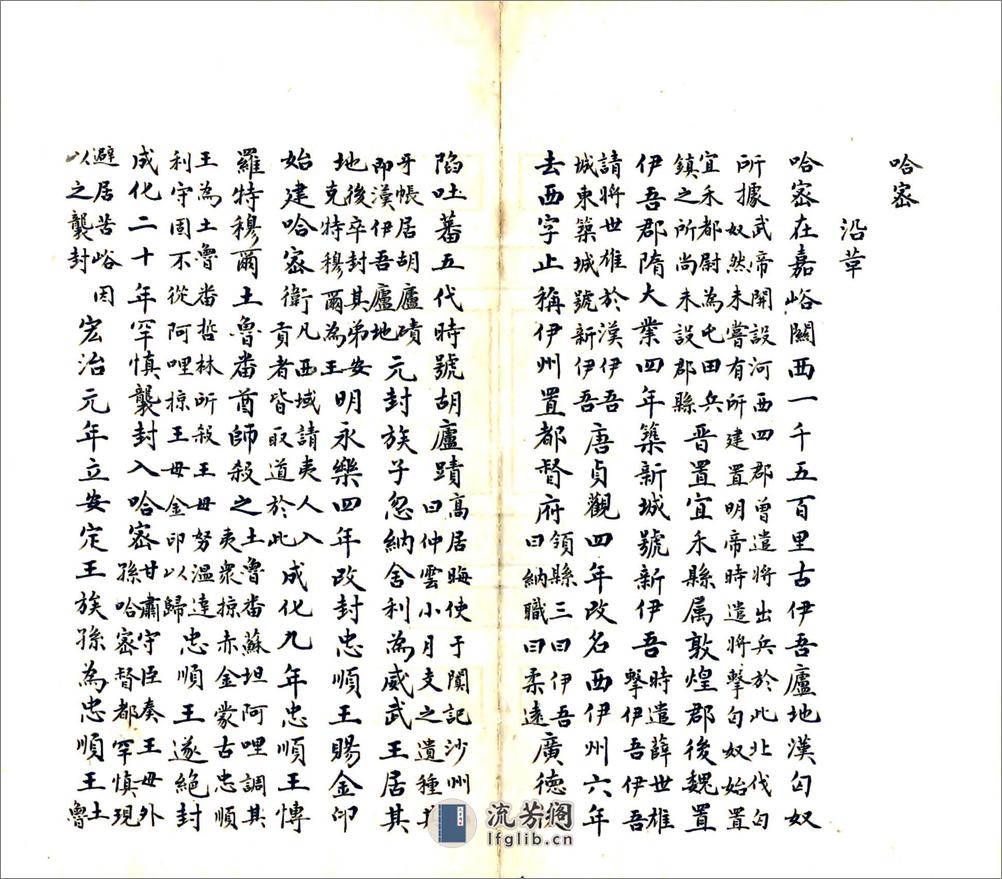 哈密
沿革
哈密在嘉峪關西一千五百里古伊吾廬地漢匈奴
所據武帝開設河西四郡曾遣將出兵於此北伐匈
奴然未嘗有所建置明帝時遣將擊匈奴始置
宜禾都尉為屯田兵
鎮之所尚未設郡縣晋置宜禾縣属敦煌郡後魏置
伊吾郡隋大業四年築新城號新伊吾時遣薛世雄
擊伊吾伊吾
請將世雄於漢伊吾
城東築城號新伊吾唐貞觀四年改名西伊州六年
去西字止稱伊州置都督府領縣三曰伊吾
曰納職曰柔遠廣德
陷吐蕃五代時號胡廬蹟高居晦使于闐記沙州
曰仲雲小月支之遺種其
牙帳居胡廬磧
即漢伊吾廬地元封族子忽納舍利為威武王居其
地後卒封其弟安
克特穆爾為王明永樂四年改封忠順王賜金印
始建哈密衛凡西域請夷人入
貢者皆取道於此成化九年忠順王愽
羅特穆爾土魯番酋師殺之土魯番蘇坦阿哩調其
夷衆掠赤金蒙古忠順
王為土魯番哲林所殺王母努温達
利守固不從阿哩掠王母金印以歸忠順王遂絶封
成化二十年罕慎襲封入哈密甘肅守臣奏王母外
孫哈密督都罕慎現
避居苦峪因
以之襲封宏治元年立安定王族孫為忠順王土
魯
流芳阁
lfglib.cn